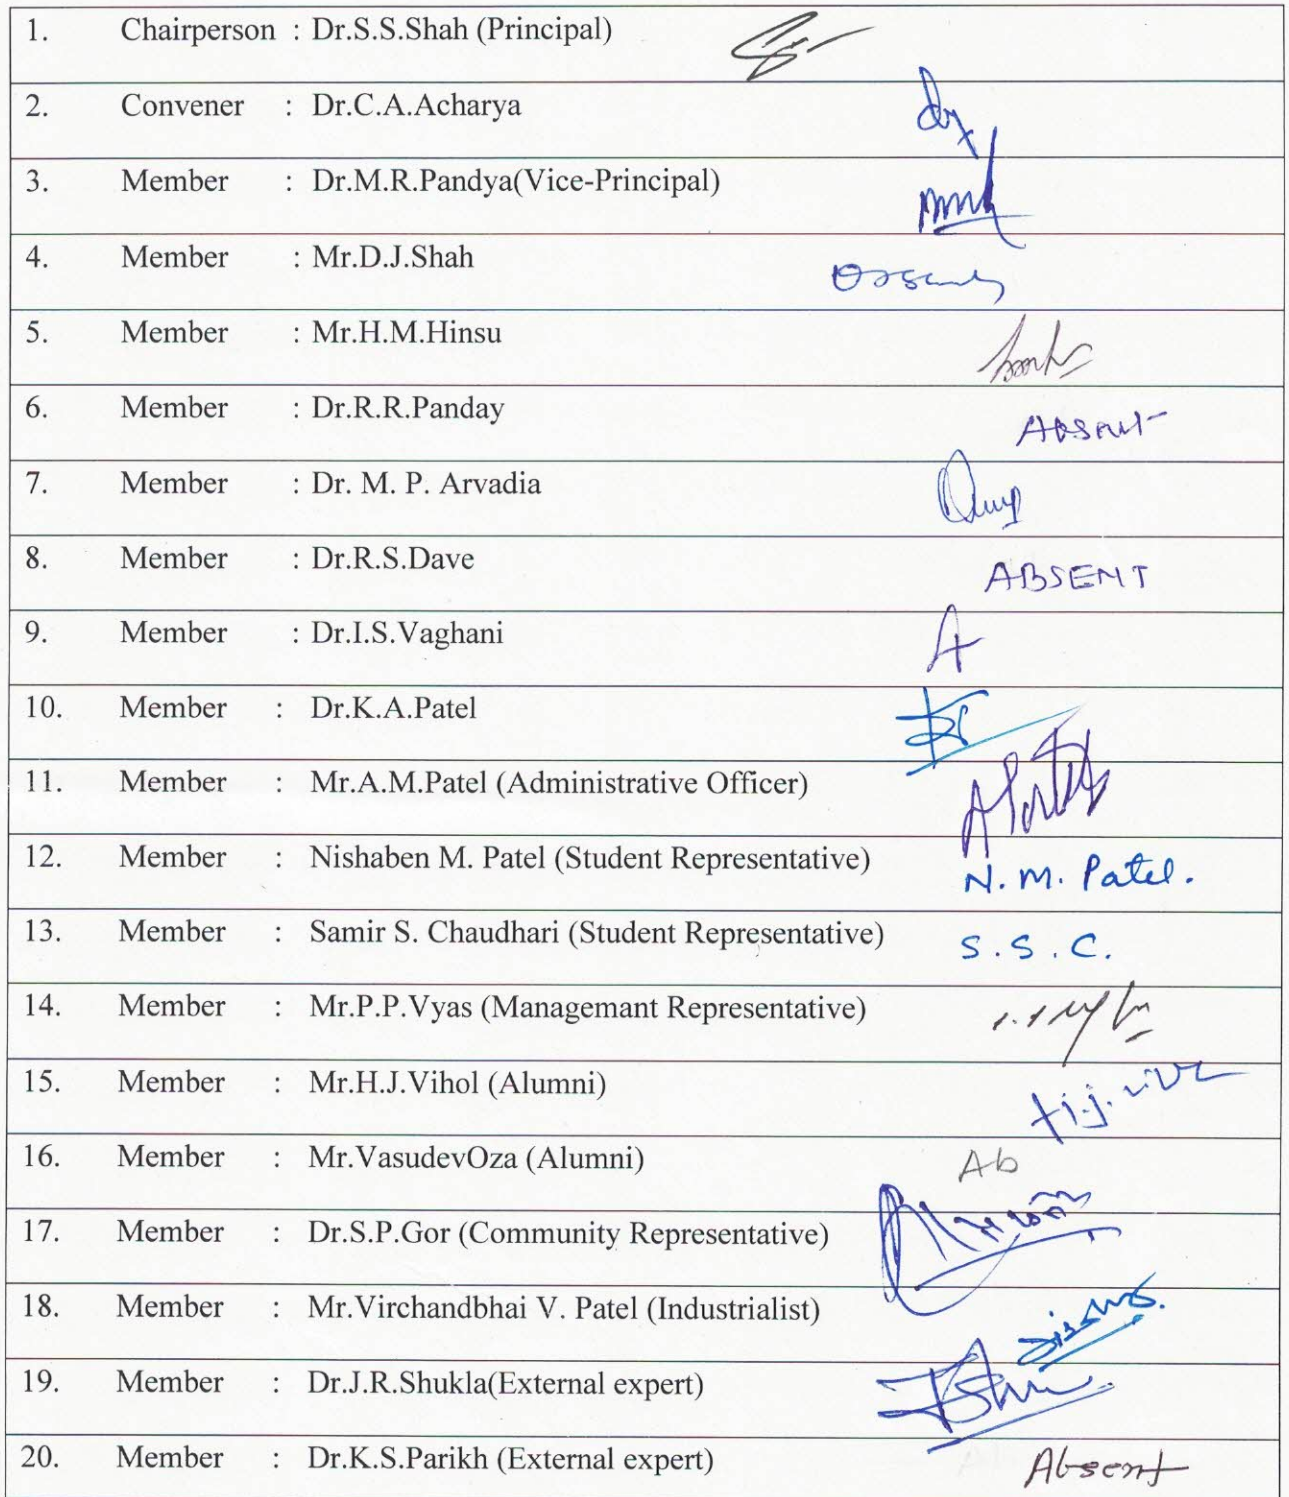 1. Chairperson : Dr.S.S.Shah (Principal)
2. Convener : Dr.C.A.Acharya
3. Member : Dr.M.R.Pandya(Vice-Principal)
4. Member : Mr.D.J.Shah
5. Member : Mr.H.M.Hinsu
6. Member : Dr.R.R.Panday Absent
7. Member : Dr. M. P. Arvadia
8. Member : Dr.R.S.Dave ABSENT
9. Member : Dr.I.S.Vaghani A
10. Member : Dr.K.A.Patel
11. Member : Mr.A.M.Patel (Administrative Officer)
12. Member : Nishaben M. Patel (Student Representative) N. M. Patel.
13. Member : Samir S. Chaudhari (Student Representative) S.S.C.
14. Member : Mr.P.P.Vyas (Managemant Representative)
15. Member : Mr.H.J.Vihol (Alumni)
16. Member : Mr.VasudevOza (Alumni) Ab
17. Member : Dr.S.P.Gor (Community Representative)
18. Member : Mr.Virchandbhai V. Patel (Industrialist)
19. Member : Dr.J.R.Shukla(External expert)
20. Member : Dr.K.S.Parikh (External expert) Absent